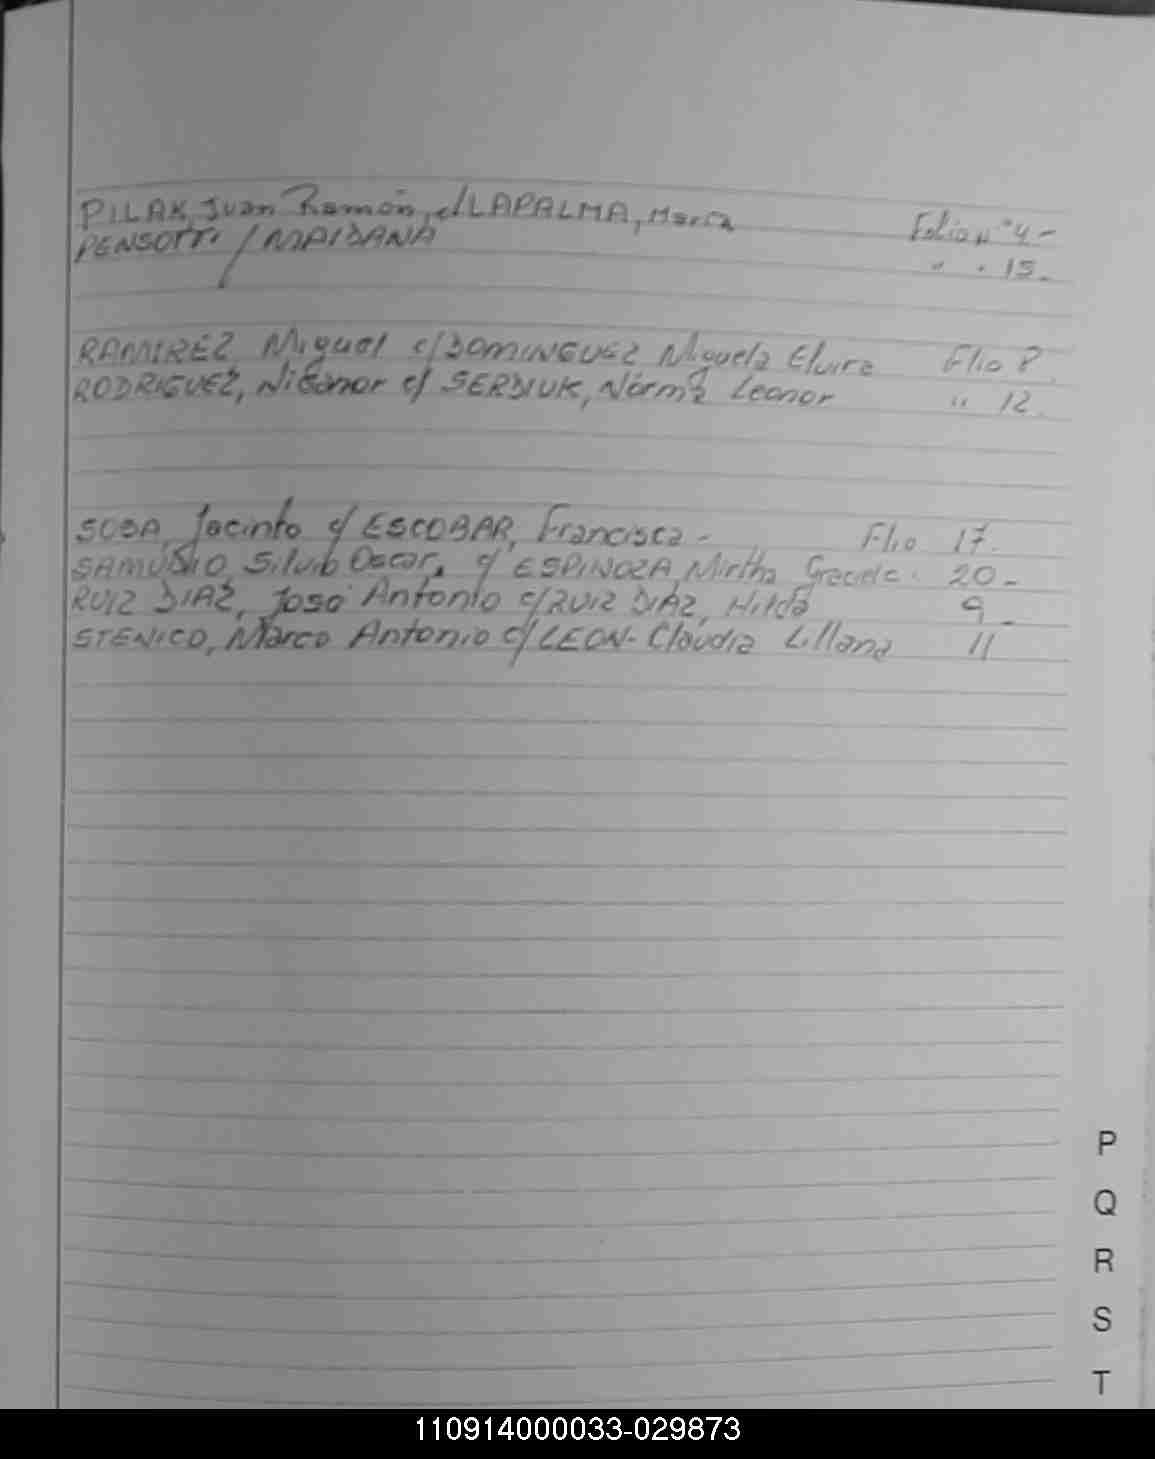 PILAK, Juan Ramón, c/ LAPALMA, María Folio n° 4-
PENSOTTI / MAIDANA " " 15-
RAMIREZ Miguel c/ DOMINGUEZ Miguela Elvira Flio 8
RODRIGUEZ, Nicanor c/ SERDIUK, Norma Leonor " 12.
SOSA, Jacinto c/ ESCOBAR, Francisca - Flio 17.
SAMUDIO, Silvio Oscar, c/ ESPINOZA, Mirtha Graciela. 20-
RUIZ DIAZ, José Antonio c/ RUIZ DIAZ, Hilda 9-
STENICO, Marco Antonio c/ LEON- Claudia Liliana 11
P
Q
R
S
T
110914000033-029873